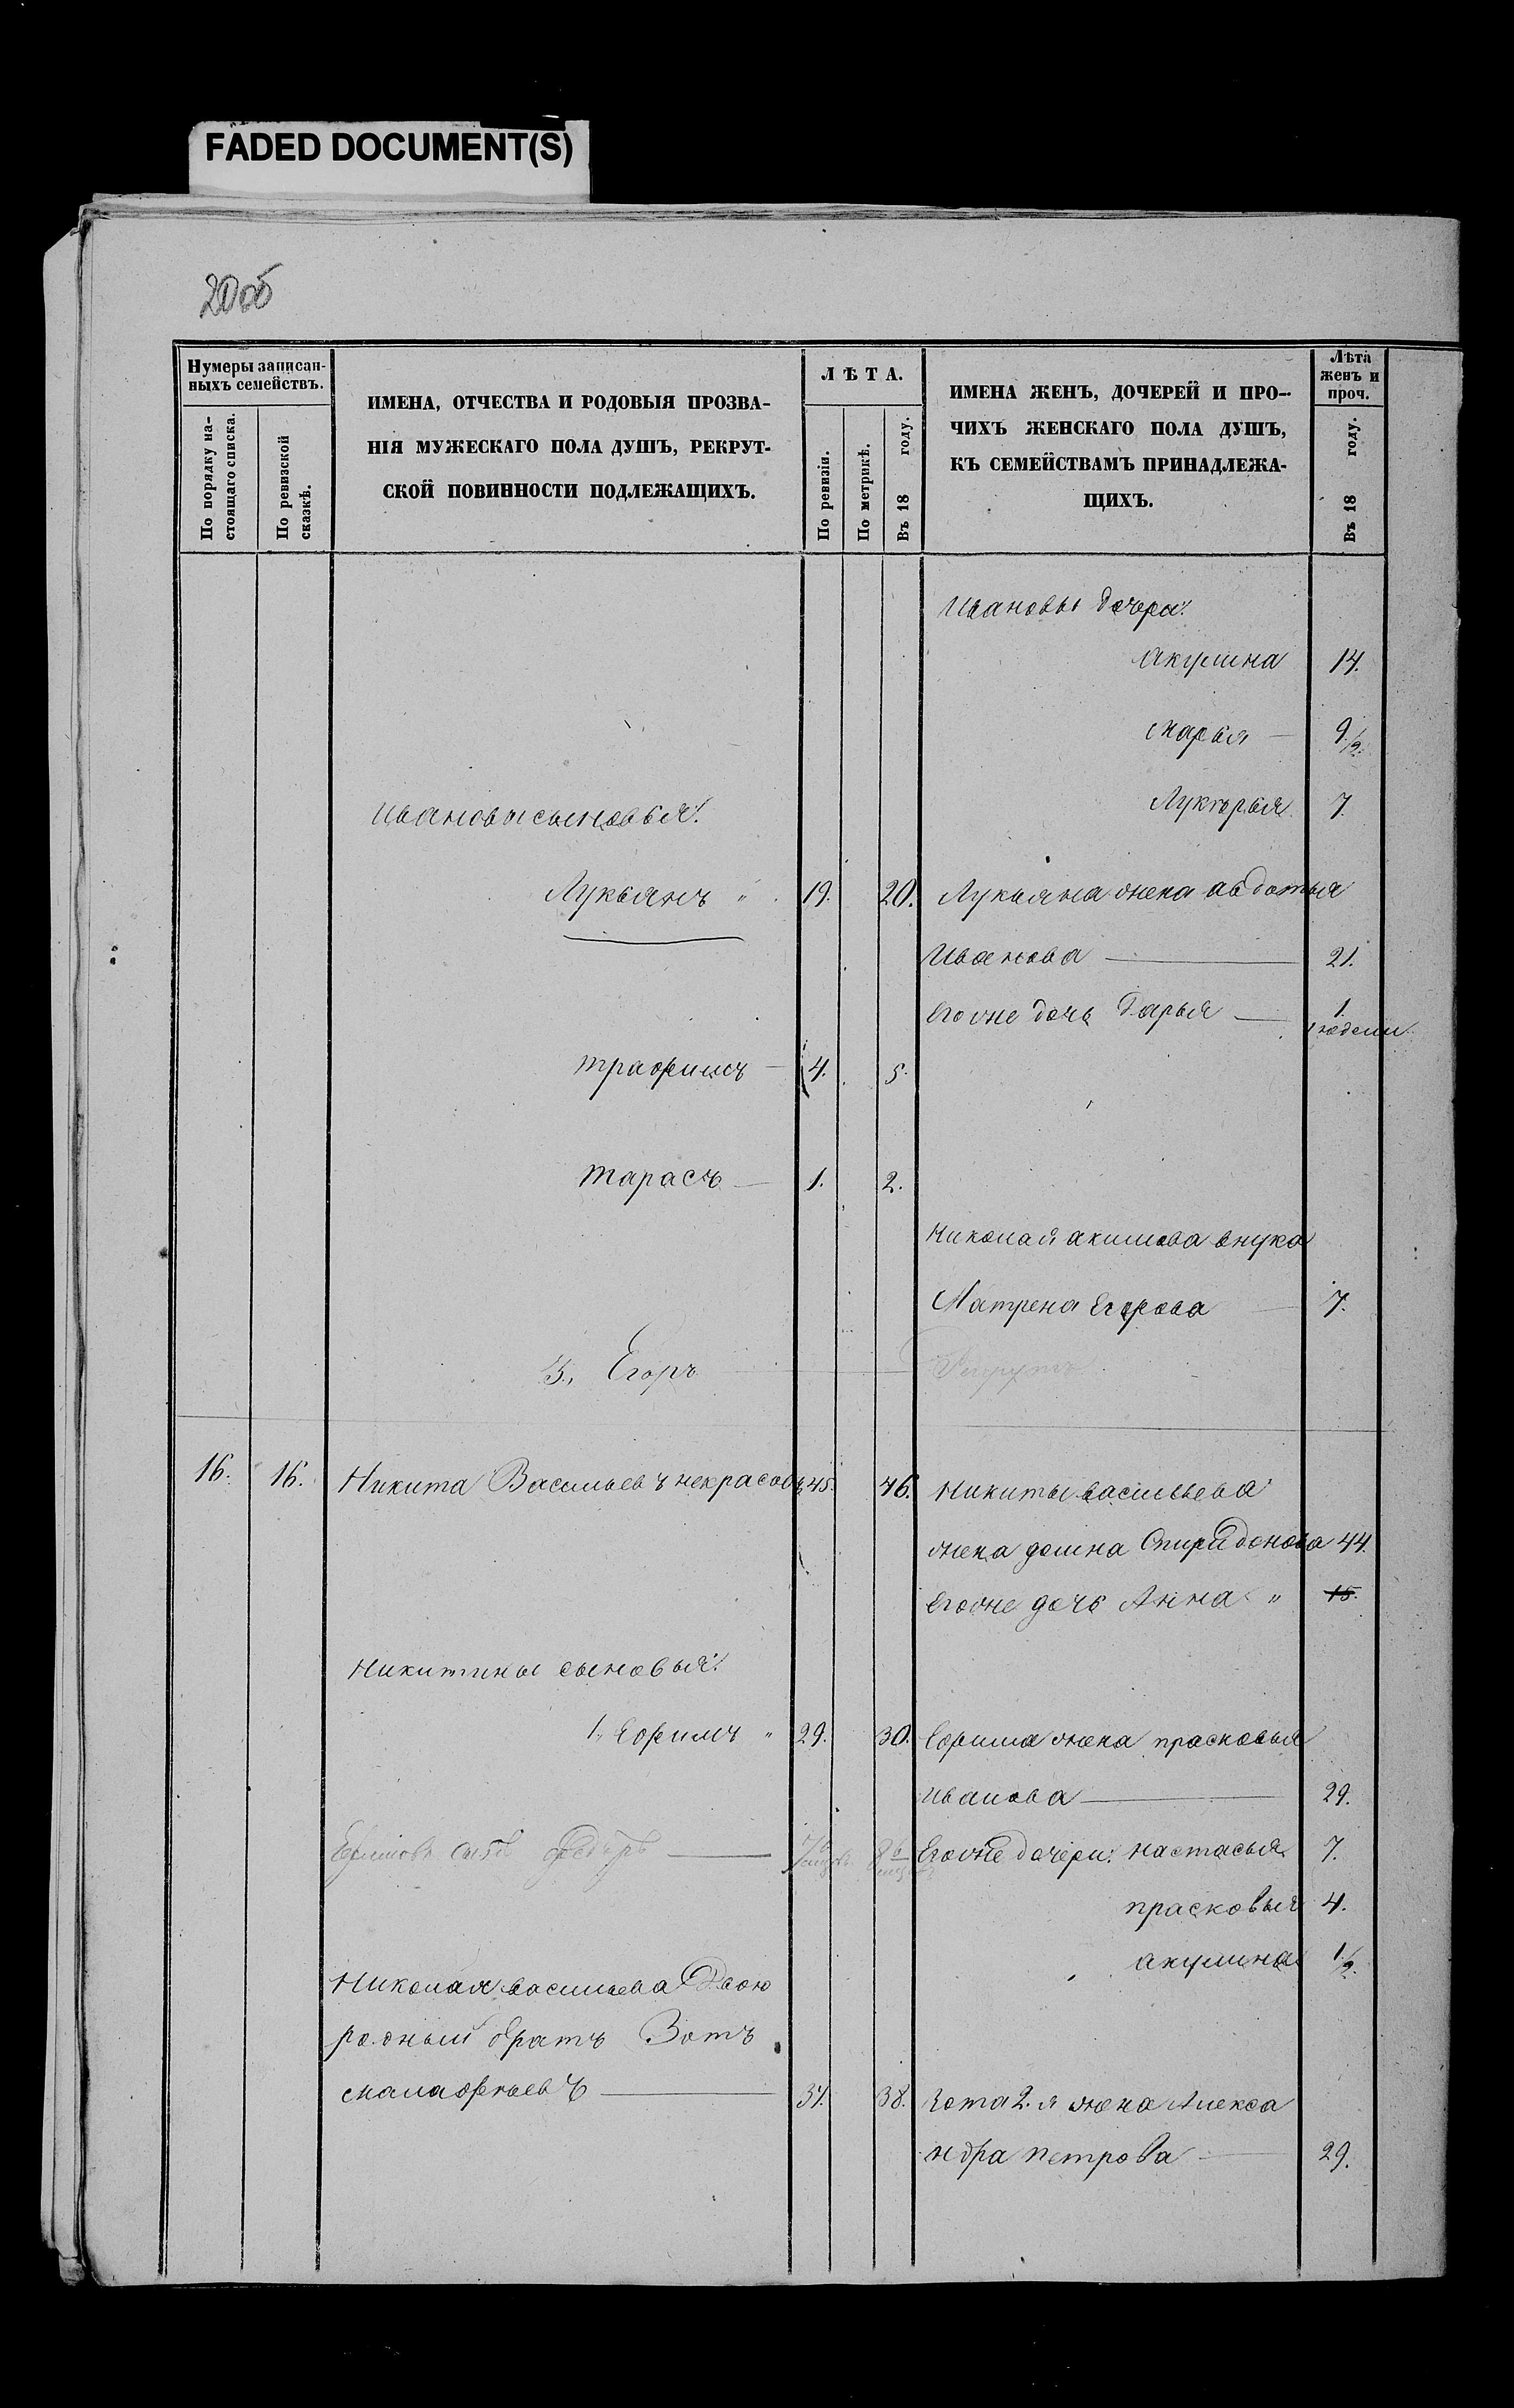 FADED DOCUMENT(S)
20об
Нумеры записан-
ныхъ семействъ.
По порядку на-
стоящаго списка.
По ревизской
сказкѣ.
ИМЕНА, ОТЧЕСТВА И РОДОВЫЯ ПРОЗВА-
НІЯ МУЖЕСКАГО ПОЛА ДУШЪ, РЕКРУТ-
СКОЙ ПОВИННОСТИ ПОДЛЕЖАЩИХЪ.
ЛѢТА.
По ревизіи.
По метрикѣ.
Въ 18 году.
ИМЕНА ЖЕНЪ, ДОЧЕРЕЙ И ПРО-
ЧИХЪ ЖЕНСКАГО ПОЛА ДУШЪ,
КЪ СЕМЕЙСТВАМЪ ПРИНАДЛЕЖА-
ЩИХЪ.
Лѣта
женъ и
проч.
Въ 18 году.
Ивановы дочери:
акулина 14.
марья — 9 1/2.
Ивановы сыновья:
Лукерья 7.
Лукьянъ " 19. 20. Лукьяна жена авдотья
Иванова — 21.
Егоже дочь дарья — 1.
недели
трафимъ — 4. 5.
тарасъ — 1. 2.
Николая акимова внука
Матрена Егорова 7.
3., Егоръ Рекрутъ
16. 16. Никита Васильевъ некрасовъ 45. 46. Никиты васильева
жена домна Спиридонова 44.
Егоже дочь Анна " 15.
Никитины сыновья:
1., Ефимъ " 29. 30. Ефима жена прасковья
Иванова — 29.
Ефимовъ сынъ Федоръ — Егоже дочери: настасья 7.
прасковья 4.
акулина 1/2.
Николая васильева Двою
родный братъ Зотъ
малафеьевъ — 37. 38. Зота 2.я жена Алекса
ндра петрова — 29.